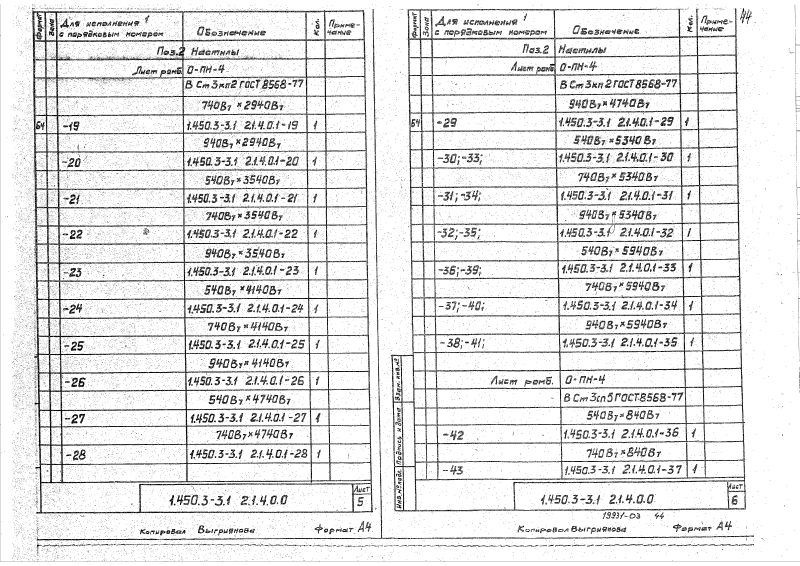 44
Формат Зона Для исполнения 1 с порядковым номером Обозначение Кол. Примечание
Поз.2 Настилы
Лист ромб. О-ПН-4
В Ст3кп2 ГОСТ 8568-77
740Вт×2940Вт
БЧ -19 1.450.3-3.1 2.1.4.0.1-19 1
940Вт×2940Вт
-20 1.450.3-3.1 2.1.4.0.1-20 1
540Вт×3540Вт
-21 1.450.3-3.1 2.1.4.0.1-21 1
740Вт×3540Вт
-22 1.450.3-3.1 2.1.4.0.1-22 1
940Вт×3540Вт
-23 1.450.3-3.1 2.1.4.0.1-23 1
540Вт×4140Вт
-24 1.450.3-3.1 2.1.4.0.1-24 1
740Вт×4140Вт
-25 1.450.3-3.1 2.1.4.0.1-25 1
940Вт×4140Вт
-26 1.450.3-3.1 2.1.4.0.1-26 1
540Вт×4740Вт
-27 1.450.3-3.1 2.1.4.0.1-27 1
740Вт×4740Вт
-28 1.450.3-3.1 2.1.4.0.1-28 1
1.450.3-3.1 2.1.4.0.0 Лист 5
Копировал Выгриянова Формат А4
Формат Зона Для исполнения 1 с порядковым номером Обозначение Кол. Примечание
Поз.2 Настилы
Лист ромб. О-ПН-4
В Ст3кп2 ГОСТ 8568-77
940Вт×4740Вт
БЧ -29 1.450.3-3.1 2.1.4.0.1-29 1
540Вт×5340Вт
-30;-33; 1.450.3-3.1 2.1.4.0.1-30 1
740Вт×5340Вт
-31;-34; 1.450.3-3.1 2.1.4.0.1-31 1
940Вт×5340Вт
-32;-35; 1.450.3-3.1 2.1.4.0.1-32 1
540Вт×5940Вт
-36;-39; 1.450.3-3.1 2.1.4.0.1-33 1
740Вт×5940Вт
-37;-40; 1.450.3-3.1 2.1.4.0.1-34 1
940Вт×5940Вт
-38;-41; 1.450.3-3.1 2.1.4.0.1-35 1
Лист ромб. О-ПН-4
В Ст3сп5 ГОСТ 8568-77
540Вт×840Вт
-42 1.450.3-3.1 2.1.4.0.1-36 1
740Вт×840Вт
-43 1.450.3-3.1 2.1.4.0.1-37 1
Инв.№ подл. Подпись и дата Взам. инв.№
1.450.3-3.1 2.1.4.0.0 Лист 6
19931-03 44
Копировал Выгриянова Формат А4